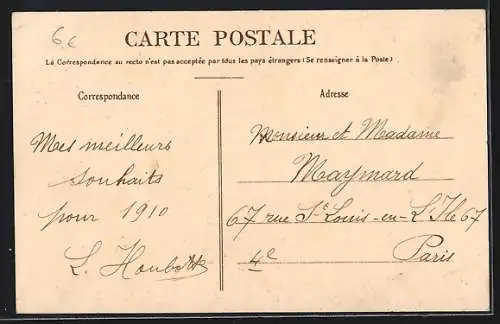 6€
CARTE POSTALE
La Correspondance au recto n'est pas acceptée par tous les pays étrangers (Se renseigner à la Poste)
Correspondance
Mes meilleurs
souhaits
pour 1910
L.
Adresse
Monsieur et Madame
Maymard
67 rue St Louis-en-L'Ile 67
4e Paris